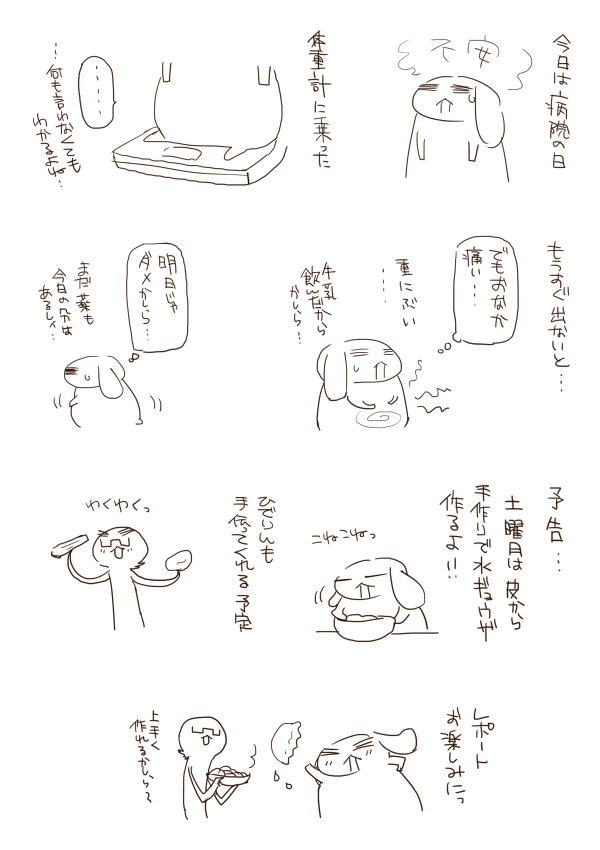 今日は病院の日
不安
体重計に乗った
・・・・・
…何も言わなくても
わかるよね…
もうすぐ出ないと…
でもおなか
痛い…
重にぶい
…
牛乳
飲んだから
かしら…
明日じゃ
ダメかしら…
まだ薬も
今日の分は
あるしィ…
予告…
土曜月は皮から
手作りで水ギョウザ
作るよ!!
こねこねっ
ひでりんも
手伝ってくれる予定
わくわくっ
レポート
お楽しみにっ
上手く
作れるかしら?